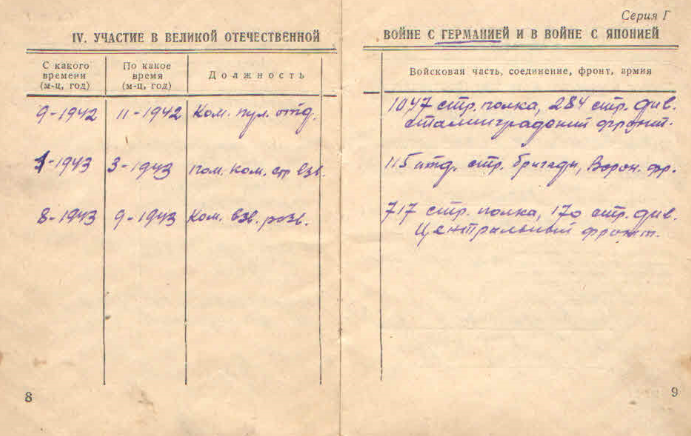 Серия Г
IV. УЧАСТИЕ В ВЕЛИКОЙ ОТЕЧЕСТВЕННОЙ ВОЙНЕ С ГЕРМАНИЕЙ И В ВОЙНЕ С ЯПОНИЕЙ
С какого времени (м-ц, год)
По какое время (м-ц, год)
Должность
Войсковая часть, соединение, фронт, армия
9-1942 11-1942 Ком. пул. отд. 1047 стр. полка, 284 стр. див.
Сталинградский фронт.
1-1943 3-1943 пом. ком. стр взв. 115 отд. стр. бригады, Ворон. фр.
8-1943 9-1943 Ком. взв. разв. 717 стр. полка, 170 стр. див.
Центральный фронт.
8
9